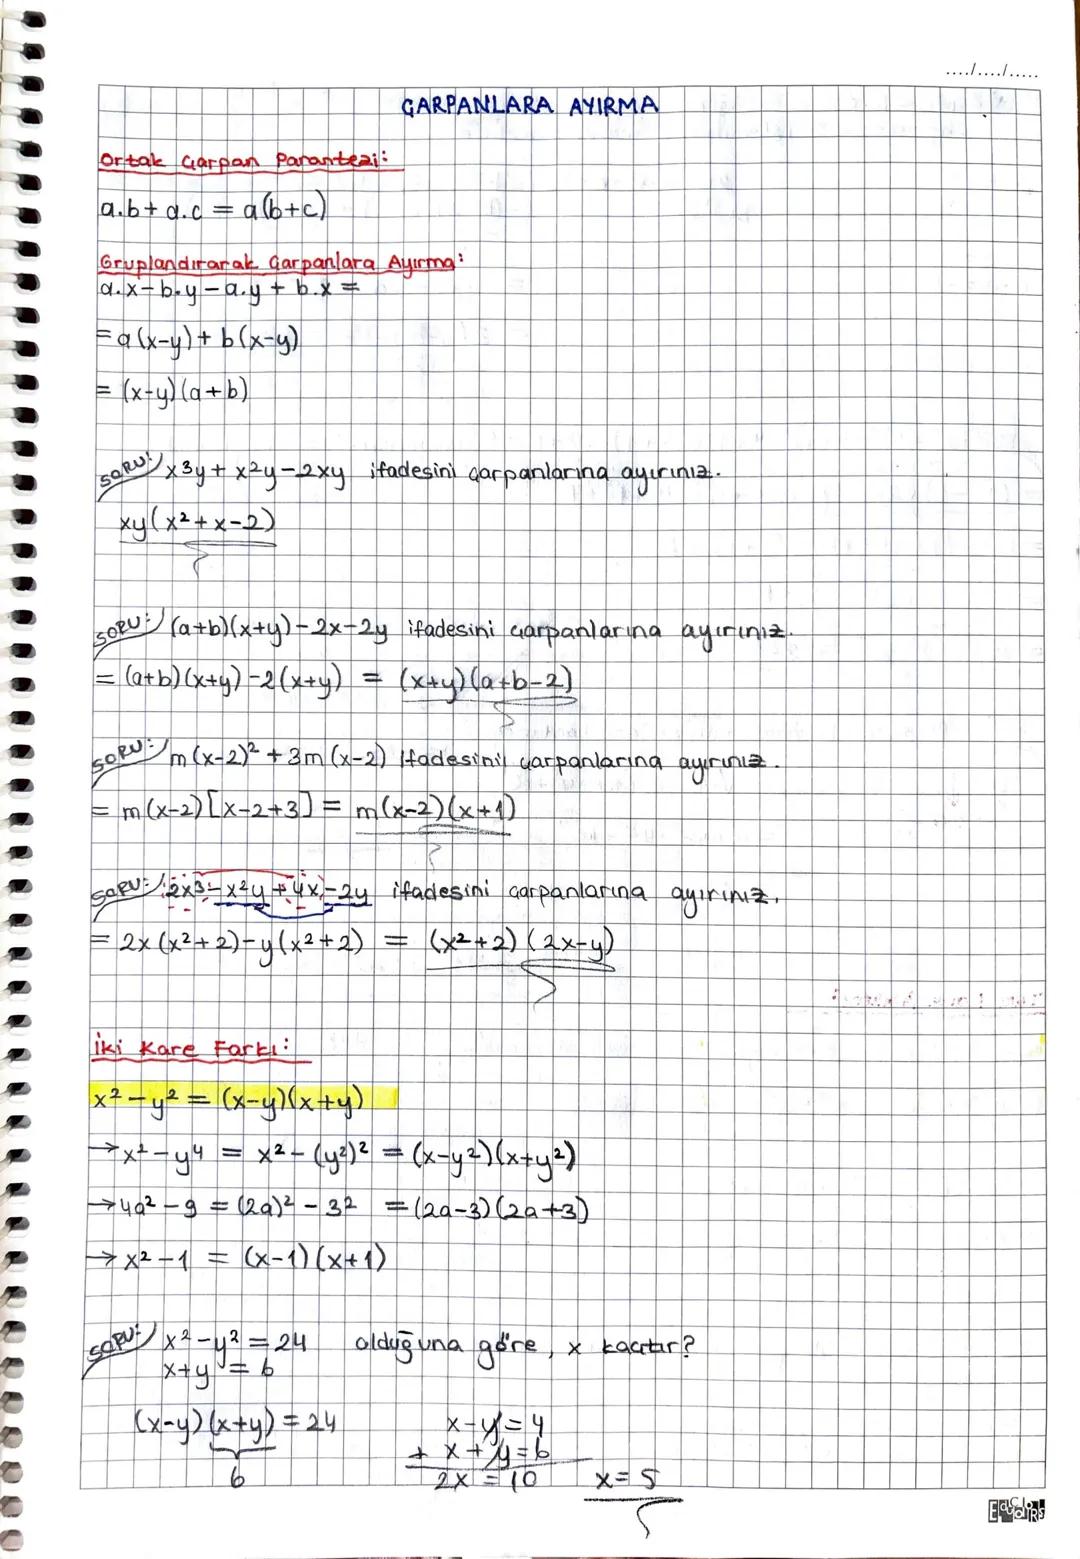 ..../..../.....
ÇARPANLARA AYIRMA
Ortak Çarpan Parantezi:
a.b + a.c = a(b+c)
Gruplandırarak Çarpanlara Ayırma:
a.x - b.y - a.y + b.x =
= a(x-y) + b(x-y)
= (x-y)(a+b)
SORU: x3y + x2y - 2xy ifadesini çarpanlarına ayırınız.
xy(x² + x - 2)
SORU: (a+b)(x+y) - 2x - 2y ifadesini çarpanlarına ayırınız.
= (a+b)(x+y) - 2(x+y) = (x+y)(a+b-2)
SORU: m(x-2)² + 3m(x-2) ifadesini çarpanlarına ayırınız.
= m(x-2)[x-2+3] = m(x-2)(x+1)
SORU: 2x3 - x²y + 4x - 2y ifadesini çarpanlarına ayırınız.
= 2x(x²+2) - y(x²+2) = (x²+2)(2x-y)
İki Kare Farkı:
x² - y² = (x-y)(x+y)
→ x² - y⁴ = x² - (y²)² = (x-y²)(x+y²)
→ 4a² - 9 = (2a)² - 3² = (2a-3)(2a+3)
→ x² - 1 = (x-1)(x+1)
SORU: x² - y² = 24 olduğuna göre, x kaçtır?
x+y = 6
(x-y)(x+y) = 24 x-y = 4
6 + x+y = 6
2x = 10 x = 5